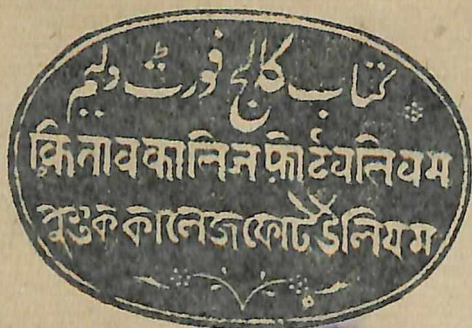 کتاب کالج فورٹ ولیم
कितावकालिजफोर्टवलियम
পুস্তককালেজফোর্টউলিযম